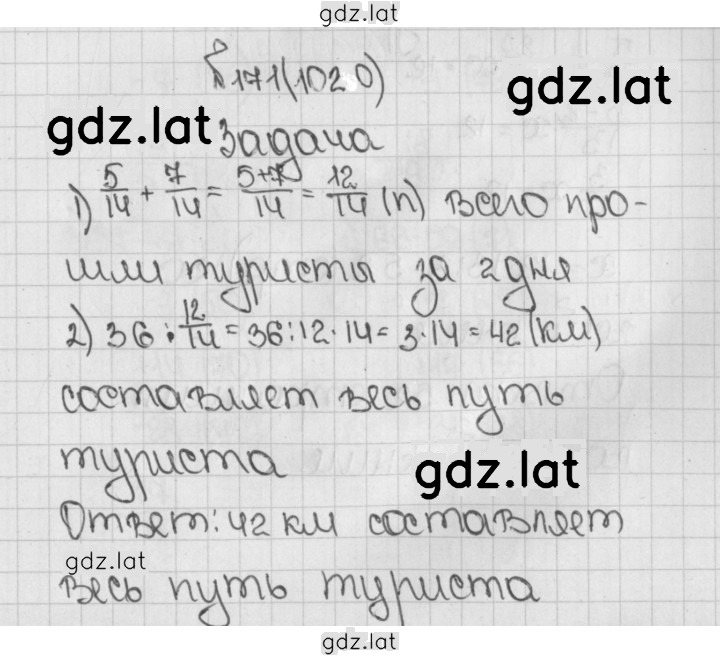 gdz.lat
№171(1020)
gdz.lat
gdz.lat
Задача
1) 5/14 + 7/14 = 5+7/14 = 12/14 (п) всего про-
шли туристы за 2 дня
2) 36 : 12/14 = 36:12·14 = 3·14 = 42 (км)
составляет весь путь
туриста
gdz.lat
Ответ: 42 км составляет
gdz.lat
весь путь туриста
gdz.lat